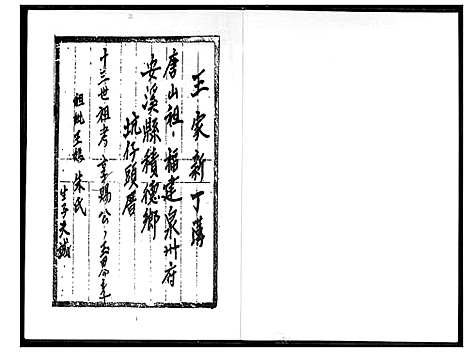 王家新丁簿
唐山祖，福建泉州府
安溪縣積德鄉
坑仔頭厝
十三世祖考享賜公，
祖妣王媽朱氏
生子天誠